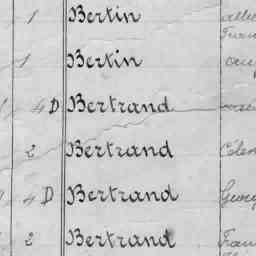 1 Bertin
1 Bertin
4 D Bertrand
2 Bertrand
4 D Bertrand
2 Bertrand